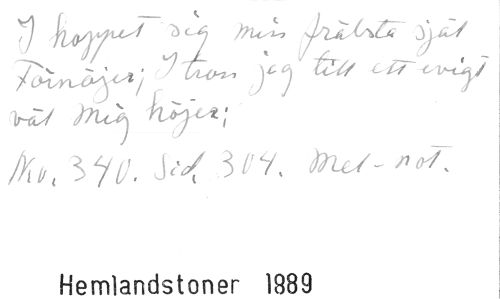 I hoppet sig min frälsta själ
Förnöjer; I tron jag till ett evigt
väl Mig höjer;
No. 340. Sid. 304. Mel-not.
Hemlandstoner 1889